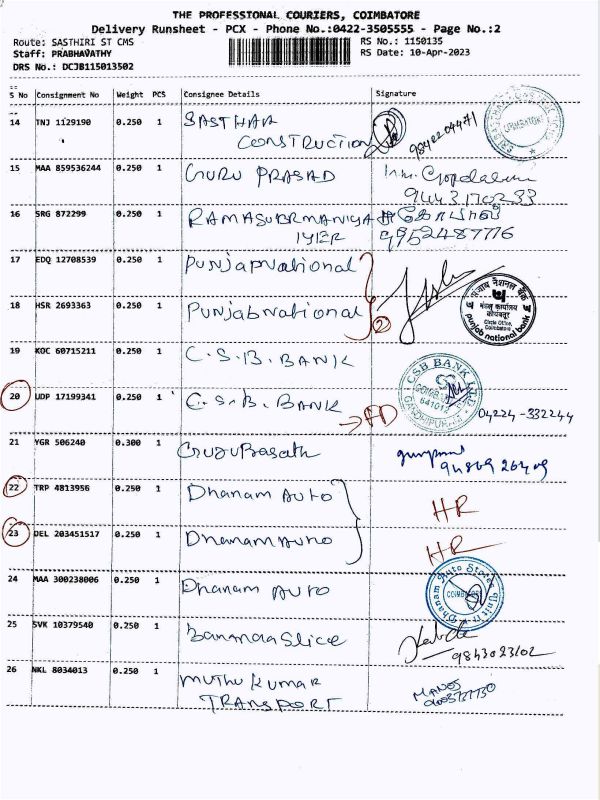 THE PROFESSIONAL COURIERS, COIMBATORE
Delivery Runsheet - PCX - Phone No.:0422-3505555 - Page No.:2
Route: SASTHIRI ST CMS RS No.: 1150135
Staff: PRABHAVATHY RS Date: 10-Apr-2023
DRS No.: DCJB115013502
S No Consignment No Weight PCS Consignee Details Signature
14 TNJ 1129190 0.250 1 SASTHAA
CONSTRUCTION 9842204471
COIMBATORE
15 MAA 859536244 0.250 1 GURU PRASAD
9443170233
16 SRG 872299 0.250 1 RAMASUBRMANIYA
IYER 9952487776
17 EDQ 12708539 0.250 1 PUNJAPNational
18 HSR 2693363 0.250 1 PUNJABNational 2
पंजाब नैशनल बैंक
मंडल कार्यालय
कोयंबतूर
Circle Office,
Coimbatore.
punjab national bank
19 KOC 60715211 0.250 1 C.S.B. BANK
CSB BANK LTD
20 UDP 17199341 0.250 1 C.S.B. BANK
641012
GANDHIPURAM
04224-332244
21 YGR 506240 0.300 1 GuruPrasath
22 TRP 4813956 0.250 1 Dhanam Auto HR
23 DEL 203451517 0.250 1 Dhanam Auto HR
24 MAA 300238006 0.250 1 Dhanam Auto
Dhanam Auto Stores Unit II
25 SVK 10379540 0.250 1 Bananaa Slice
9843023102
26 NKL 8034013 0.250 1 Muthu Kumar
TRANSPORT MANOJ